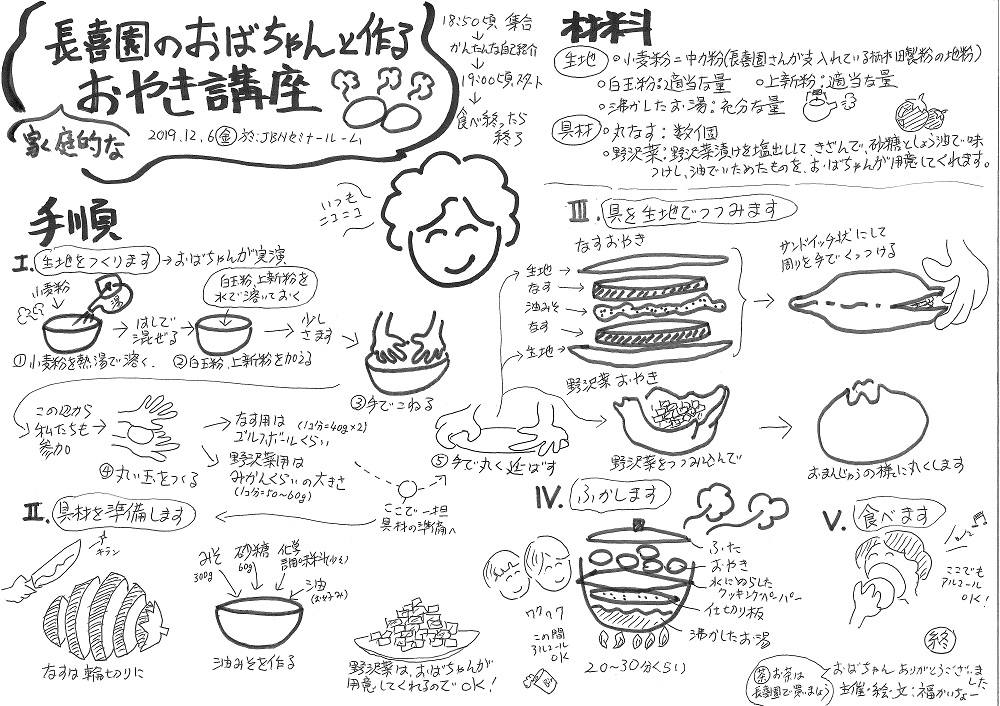 長喜園のおばちゃんと作る
おやき講座
家庭的な
2019.12.6金 於:JBNセミナールーム
18:50頃 集合
かんたんな自己紹介
19:00頃スタート
食べ終ったら
終了
材料
生地
○小麦粉=中力粉(長喜園さんが支入れている柄木田製粉の地粉)
○白玉粉:適当な量 ○上新粉:適当な量
○沸かしたお湯:充分な量
具材
○丸なす:数個
○野沢菜:野沢菜漬けを塩出しして、きざんで、砂糖としょう油で味
つけし、油でいためたものを、おばちゃんが用意してくれます。
いつも
ニコニコ
手順
I. 生地をつくります→おばちゃんが実演
小麦粉
湯
はしで
混ぜる
白玉粉、上新粉を
水で溶いておく
少し
さます
①小麦粉を熱湯で溶く.
②白玉粉、上新粉を加える
③手でこねる
この辺から
私たちも
参加
④丸い玉をつくる
なす用は (1コ分=40g×2)
ゴルフボールくらい
野沢菜用は
みかんくらいの大きさ
(1コ分=50~60g)
⑤手で丸く延ばす
ここで一担
具材の準備へ
II. 具材を準備します
キラン
なすは輪切りに
みそ
300g
砂糖
60g
化学
調味料(少々)
油
(お好み)
油みそを作る
野沢菜は、おばちゃんが
用意してくれるのでOK!
III. 具を生地でつつみます
なすおやき
生地→
なす→
油みそ→
なす→
生地→
サンドイッチ状にして
周りを手でくっつける
野沢菜おやき
野沢菜をつつみ込んで
おまんじゅうの様に丸くします
IV. ふかします
ワクワク
この間
アルコール
OK
ふた
おやき
水にぬらした
クッキングペーパー
仕切り板
沸かしたお湯
20~30分くらい
V. 食べます
ここでも
アルコール
OK!
終
茶 お茶は
長喜園で買いましょう
おばちゃん ありがとうございました
主催・絵・文:福かいちょー